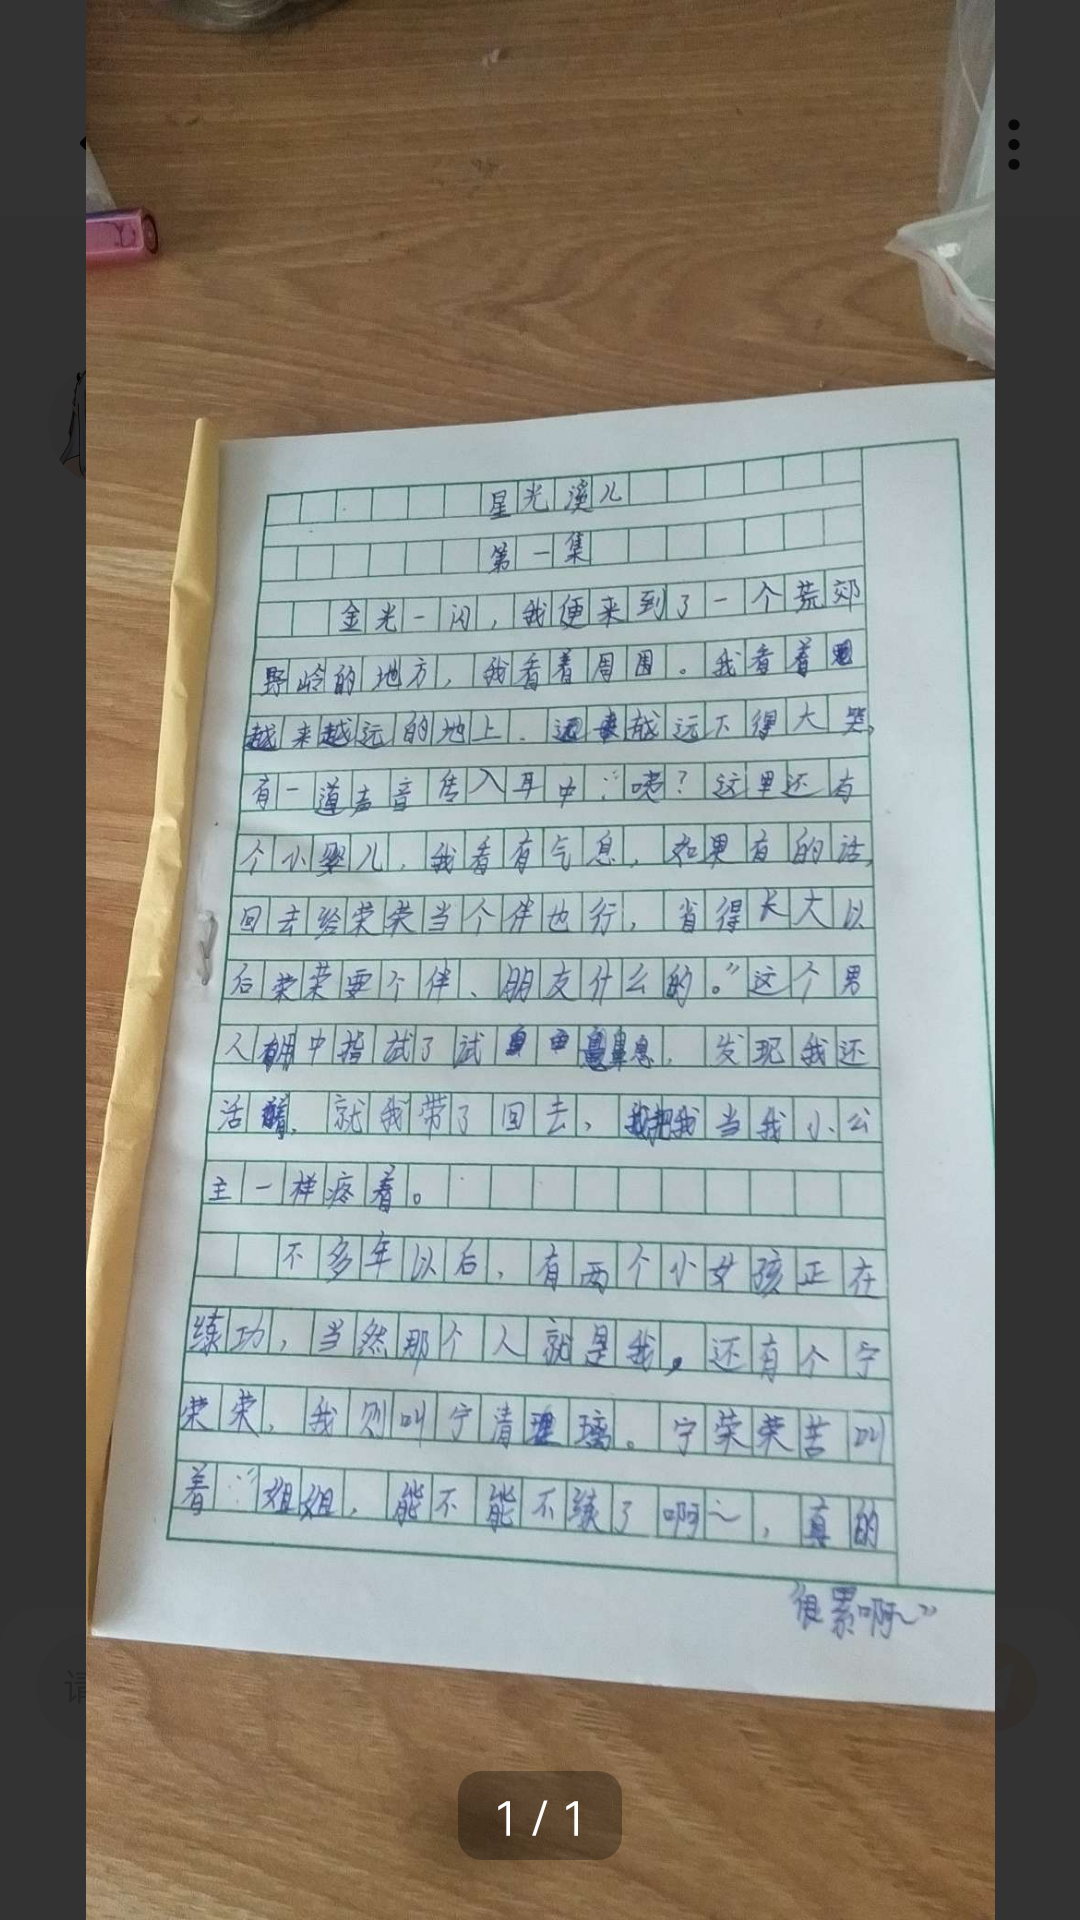 星光溪儿
第一集
金光一闪，我便来到了一个荒郊
野岭的地方，我看着周围。我看着
越来越远的地上，越远不得大哭，
有一道声音传入耳中："咦？这里还有
个小婴儿，我看有气息，如果有的话，
回去给荣荣当个伴也行，省得长大以
后荣荣要个伴、朋友什么的。"这个男
人用中指试了试鼻息，发现我还
活着，就我带了回去，把我当我小公
主一样疼着。
不多年以后，有两个小女孩正在
练功，当然那个人就是我，还有个宁
荣荣，我则叫宁清璃。宁荣荣苦叫
着："姐姐，能不能不练了啊～，真的
很累啊～"
请
1 / 1